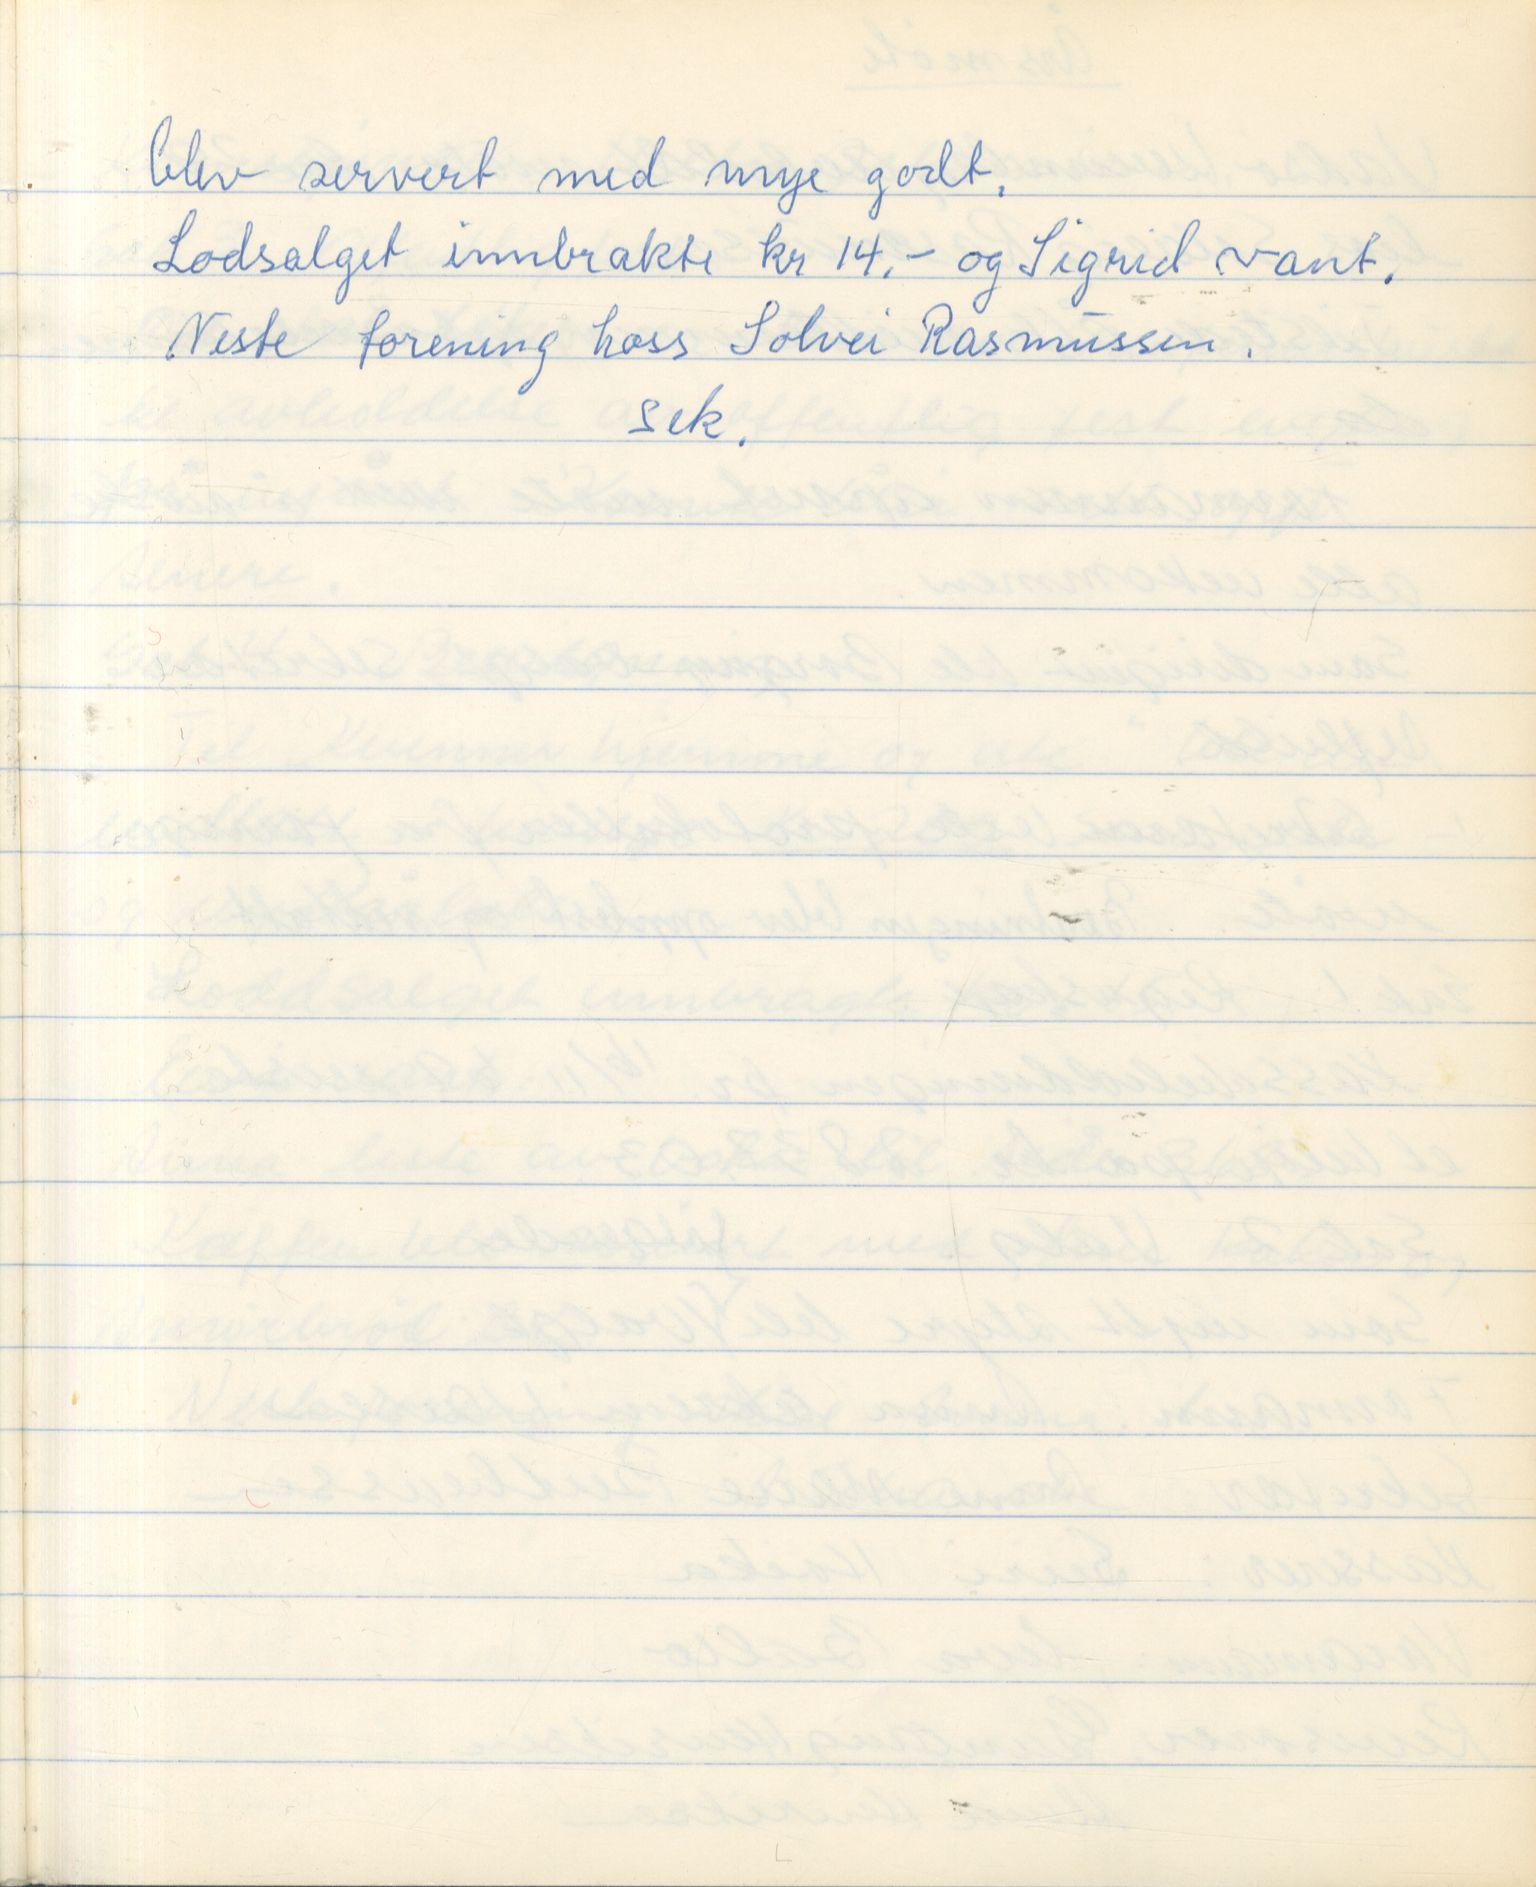 blev servert med mye godt.
Lodsalget innbrakte kr 14.- og Sigrid vant.
Neste forening hoss Solvei Rasmussen.
sek.